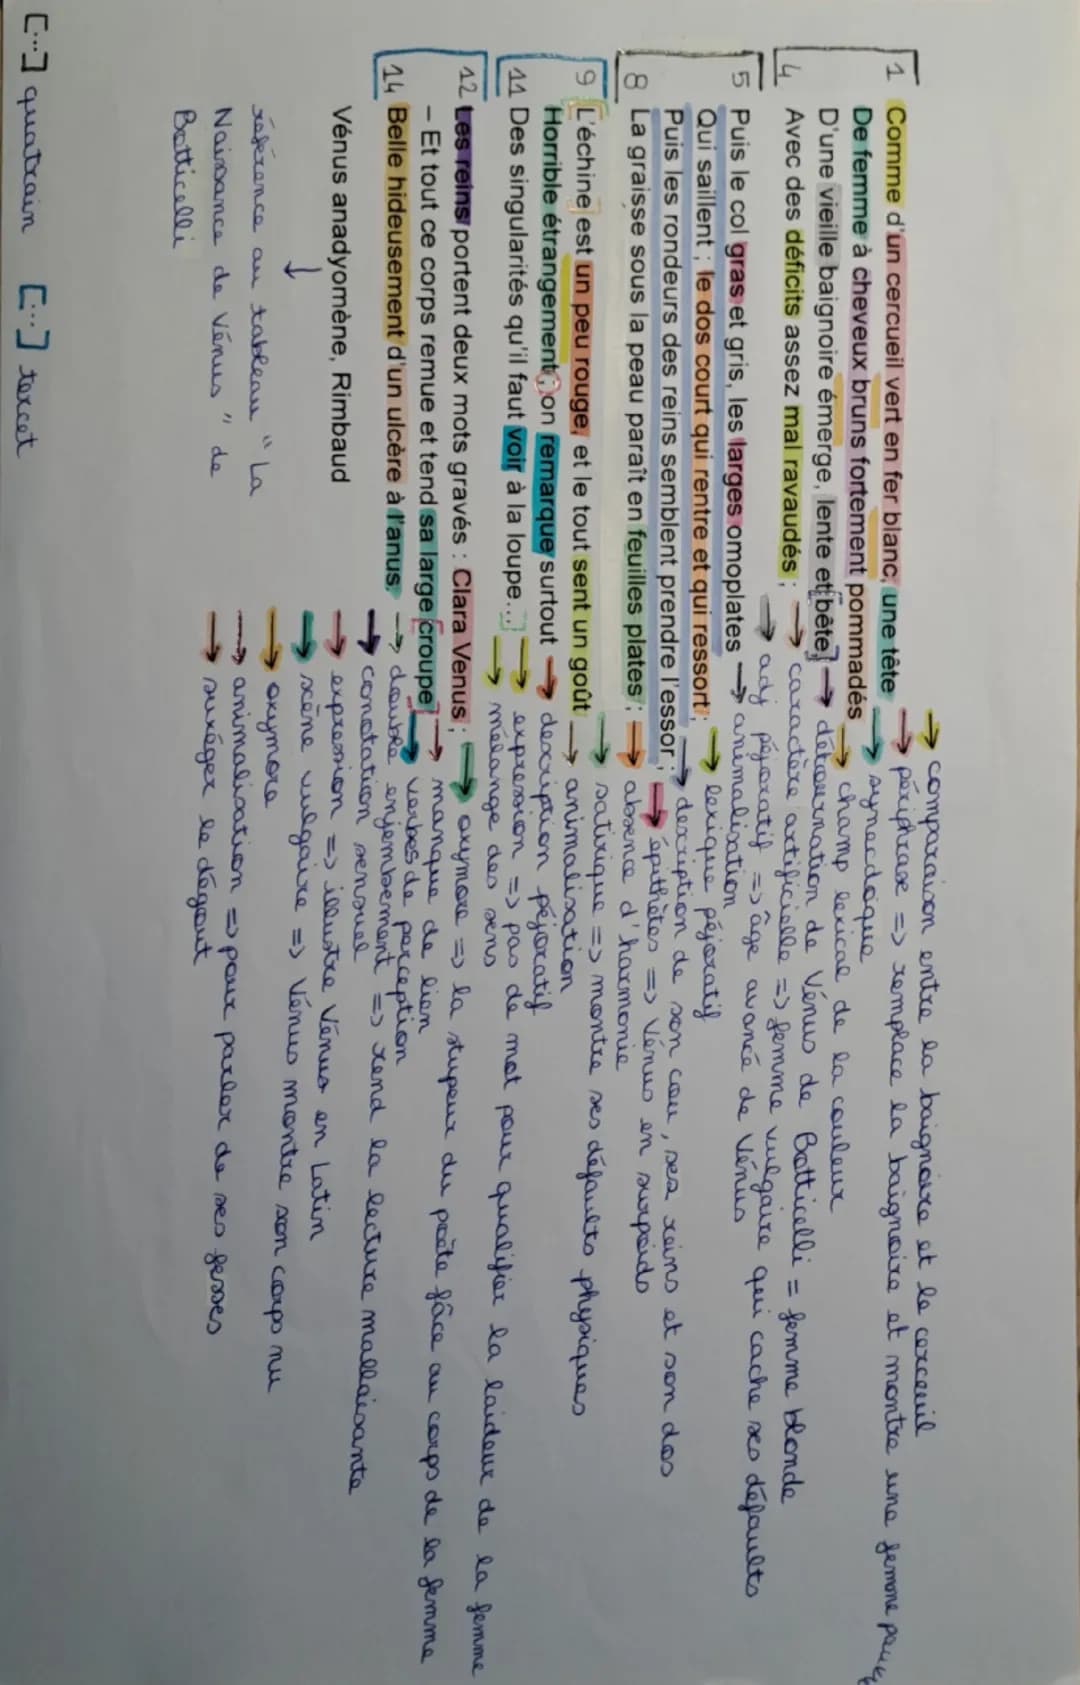 1 Comme d'un cercueil vert en fer blanc, une tête
De femme à cheveux bruns fortement pommadés
D'une vieille baignoire émerge, lente et bête,
4 Avec des déficits assez mal ravaudés ;
5 Puis le col gras et gris, les larges omoplates
Qui saillent ; le dos court qui rentre et qui ressort ;
Puis les rondeurs des reins semblent prendre l'essor ;
8 La graisse sous la peau paraît en feuilles plates ;
9 L'échine est un peu rouge, et le tout sent un goût
Horrible étrangement ; on remarque surtout
11 Des singularités qu'il faut voir à la loupe...
12 Les reins portent deux mots gravés : Clara Venus ;
– Et tout ce corps remue et tend sa large croupe
14 Belle hideusement d'un ulcère à l'anus.
Vénus anadyomène, Rimbaud
↓
référence au tableau "La
Naissance de Vénus" de
Botticelli
→ comparaison entre la baignoire et le cerceuil
→ périphrase => remplace la baignoire et montre une femme
→ synecdoique
→ champ lexical de la couleur
→ détournation de Vénus de Botticelli = femme blonde
→ caractère artificielle => femme vulgaire qui cache ses défaults
→ adj péjoratif => âge avancé de Vénus
→ animalisation
→ lexique péjoratif
→ description de son cou, ses reins et son dos
→ épithètes => Vénus en surpoids
→ absence d'harmonie
→ satirique => montre ses défaults physiques
→ animalisation
→ description péjoratif
→ expression => pas de mot pour qualifier la laideur de la femme
→ mélange des sens
→ oxymore => la stupeur du poète fâce au corps de la femme
→ manque de lien
→ verbes de perception
→ double enjembement => rend la lecture mallaisante
→ conotation sensuel
→ expression => illustre Vénus en Latin
→ scène vulgaire => Vénus montre son corps nu
→ oxymore
→ animalisation => pour parler de ses fesses
→ suxéger le dégout
[...] quatrain [...] tercet